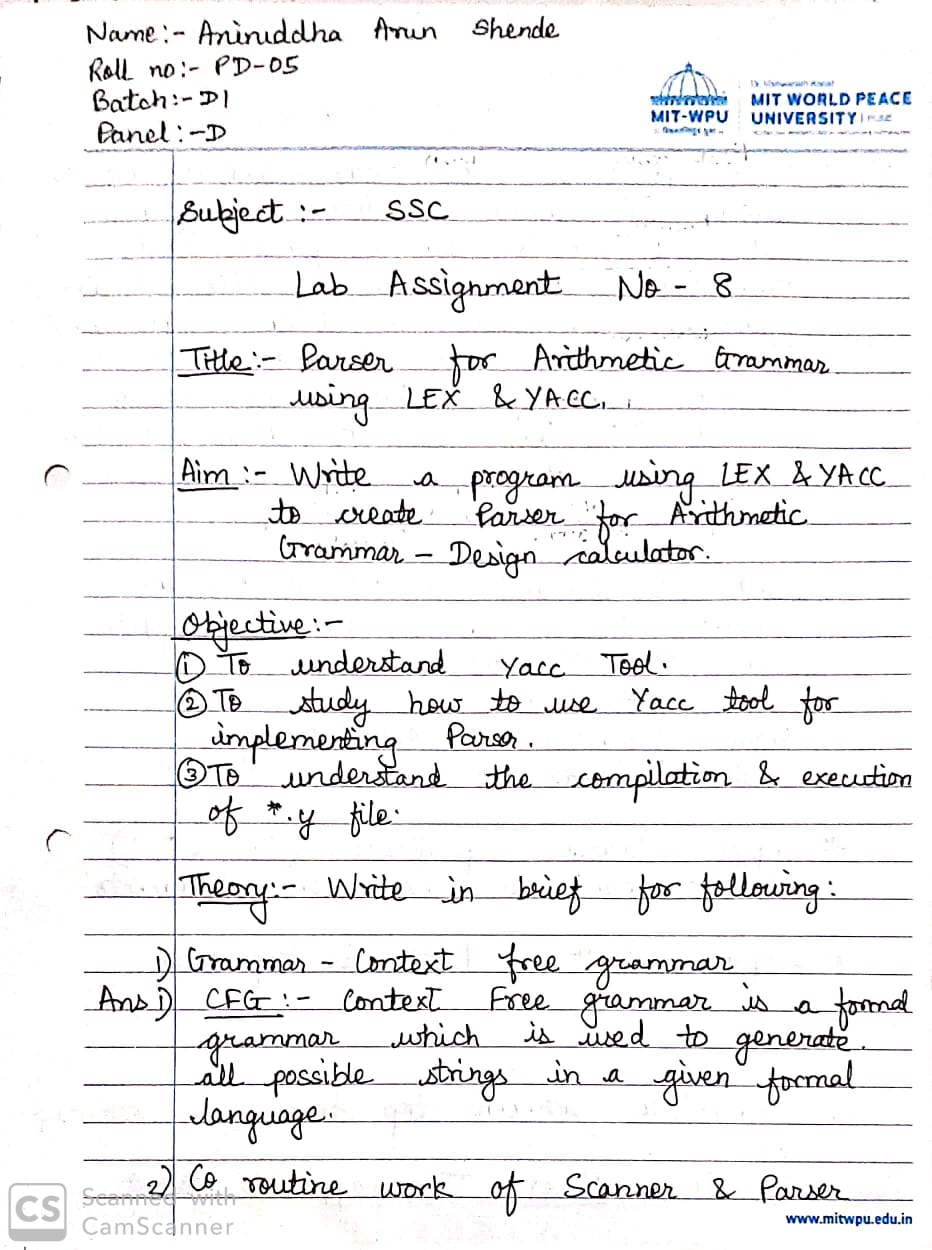 Name:- Aniruddha Arun Shende
Roll no:- PD-05
Batch:- D1
Panel:- D
MIT-WPU
MIT WORLD PEACE
UNIVERSITY
Subject :- SSC
Lab Assignment No - 8
Title:- Parser for Arithmetic Grammar
using LEX & YACC.
Aim :- Write a program using LEX & YACC
to create Parser for Arithmetic
Grammar - Design calculator.
Objective:-
① To understand Yacc Tool.
② To study how to use Yacc tool for
implementing Parser.
③ To understand the compilation & execution
of *.y file.
Theory:- Write in brief for following:
1) Grammar - Context free grammar
Ans 1) CFG :- Context Free grammar is a formal
grammar which is used to generate.
all possible strings in a given formal
language.
2) Co routine work of Scanner & Parser
CS Scanned with
CamScanner
www.mitwpu.edu.in